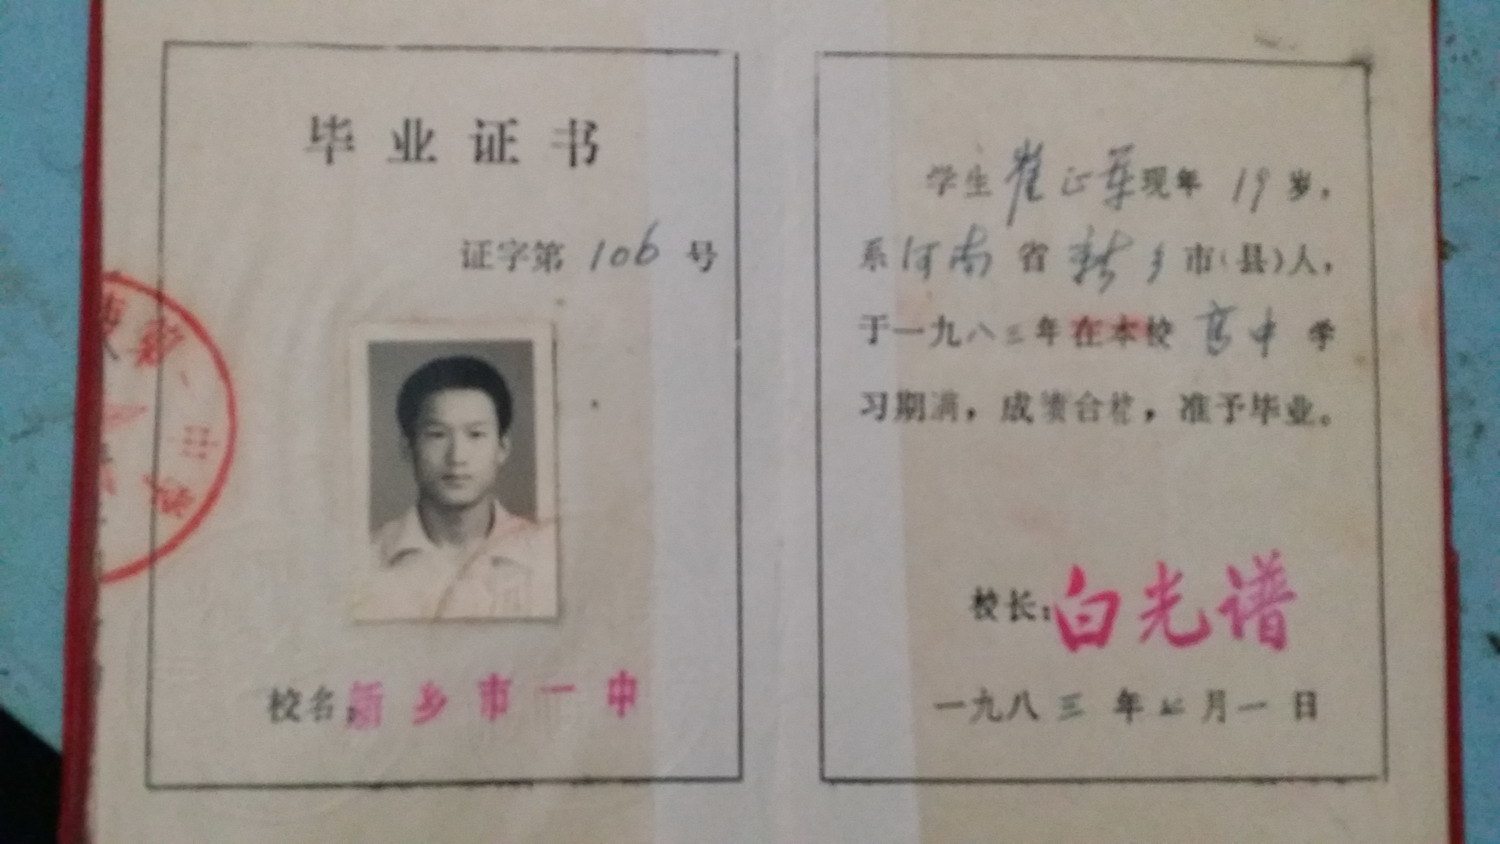 毕业证书
证字第 106 号
校名:新乡市一中
学生崔正军现年 19 岁,
系河南省新乡市(县)人,
于一九八三年在本校高中学
习期满,成绩合格,准予毕业。
校长:白光谱
一九八三年七月一日